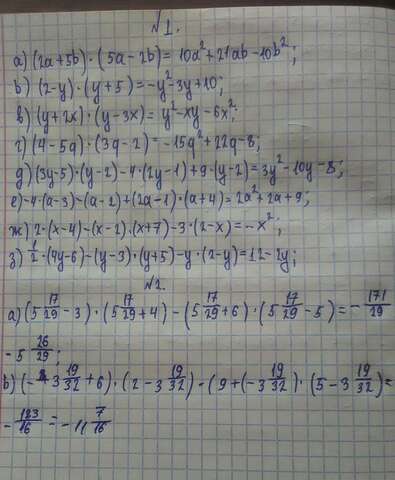 №1.
а) (2a+5b)·(5a-2b)=10a²+21ab-10b²;
b) (2-y)·(y+5)=-y²-3y+10;
в) (y+2x)·(y-3x)=y²-xy-6x²;
г) (4-5q)·(3q-2)=-15q²+22q-8;
д) (3y-5)·(y-2)-4·(2y-1)+9·(y-2)=3y²-10y-8;
е)-4·(a-3)-(a-1)+(2a-1)·(a+4)=2a²+2a+9;
ж) 2·(x-4)-(x-2).(x+7)-3·(2-x)=-x²;
з) 1/2·(4y-6)-(y-3)·(y+5)-y·(2-y)=12-2y;
№2.
а) (5 17/29-3)·(5 17/29+4)-(5 17/29+6)·(5 17/29-5)=-171/29
-5 26/29;
b) (-3 19/32+6)·(2-3 19/32)-(9+(-3 19/32)·(5-3 19/32)=
-183/16=-11 7/16